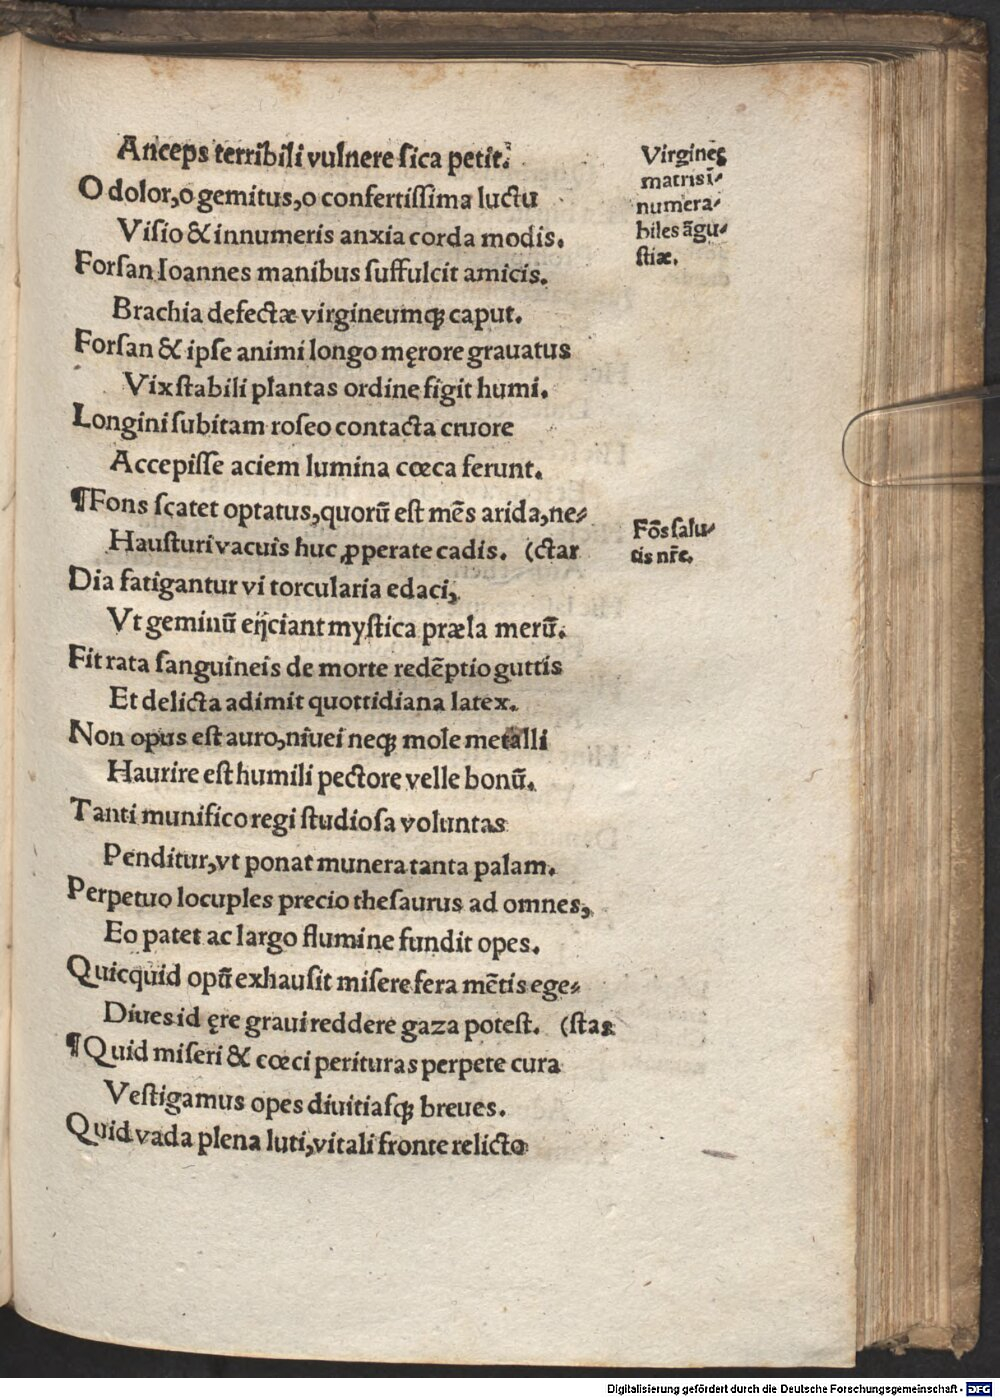 Anceps terribili vulnere sica petit.
O dolor,o gemitus,o confertissima luctu
Visio & innumeris anxia corda modis.
Forsan Ioannes manibus suffulcit amicis.
Brachia defectæ virgineumqꝫ caput.
Forsan & ipse animi longo męrore grauatus
Vix stabili plantas ordine figit humi.
Longini subitam roseo contacta cruore
Accepisse aciem lumina cœca ferunt.
¶Fons scatet optatus,quorū est mēs arida,ne⸗
Hausturi vacuis huc ꝓperate cadis. (ctar
Dia fatigantur vi torcularia edaci,
Vt geminū eijciant mystica præla merū.
Fit rata sanguineis de morte redēptio guttis
Et delicta adimit quottidiana latex.
Non opus est auro,niuei neqꝫ mole metalli
Haurire est humili pectore velle bonū.
Tanti munifico regi studiosa voluntas
Penditur,vt ponat munera tanta palam.
Perpetuo locuples precio thesaurus ad omnes,
Eo patet ac largo flumine fundit opes.
Quicquid opū exhausit misere fera mētis ege⸗
Diues id ęre graui reddere gaza potest. (stas
¶Quid miseri & cœci perituras perpete cura
Vestigamus opes diuitiasqꝫ breues.
Quid vada plena luti,vitali fronte relicto
Virgineę
matris ī⸗
numera⸗
biles āgu⸗
stiæ.
Fōs salu⸗
tis nr̄e.
Digitalisierung gefördert durch die Deutsche Forschungsgemeinschaft - DFG